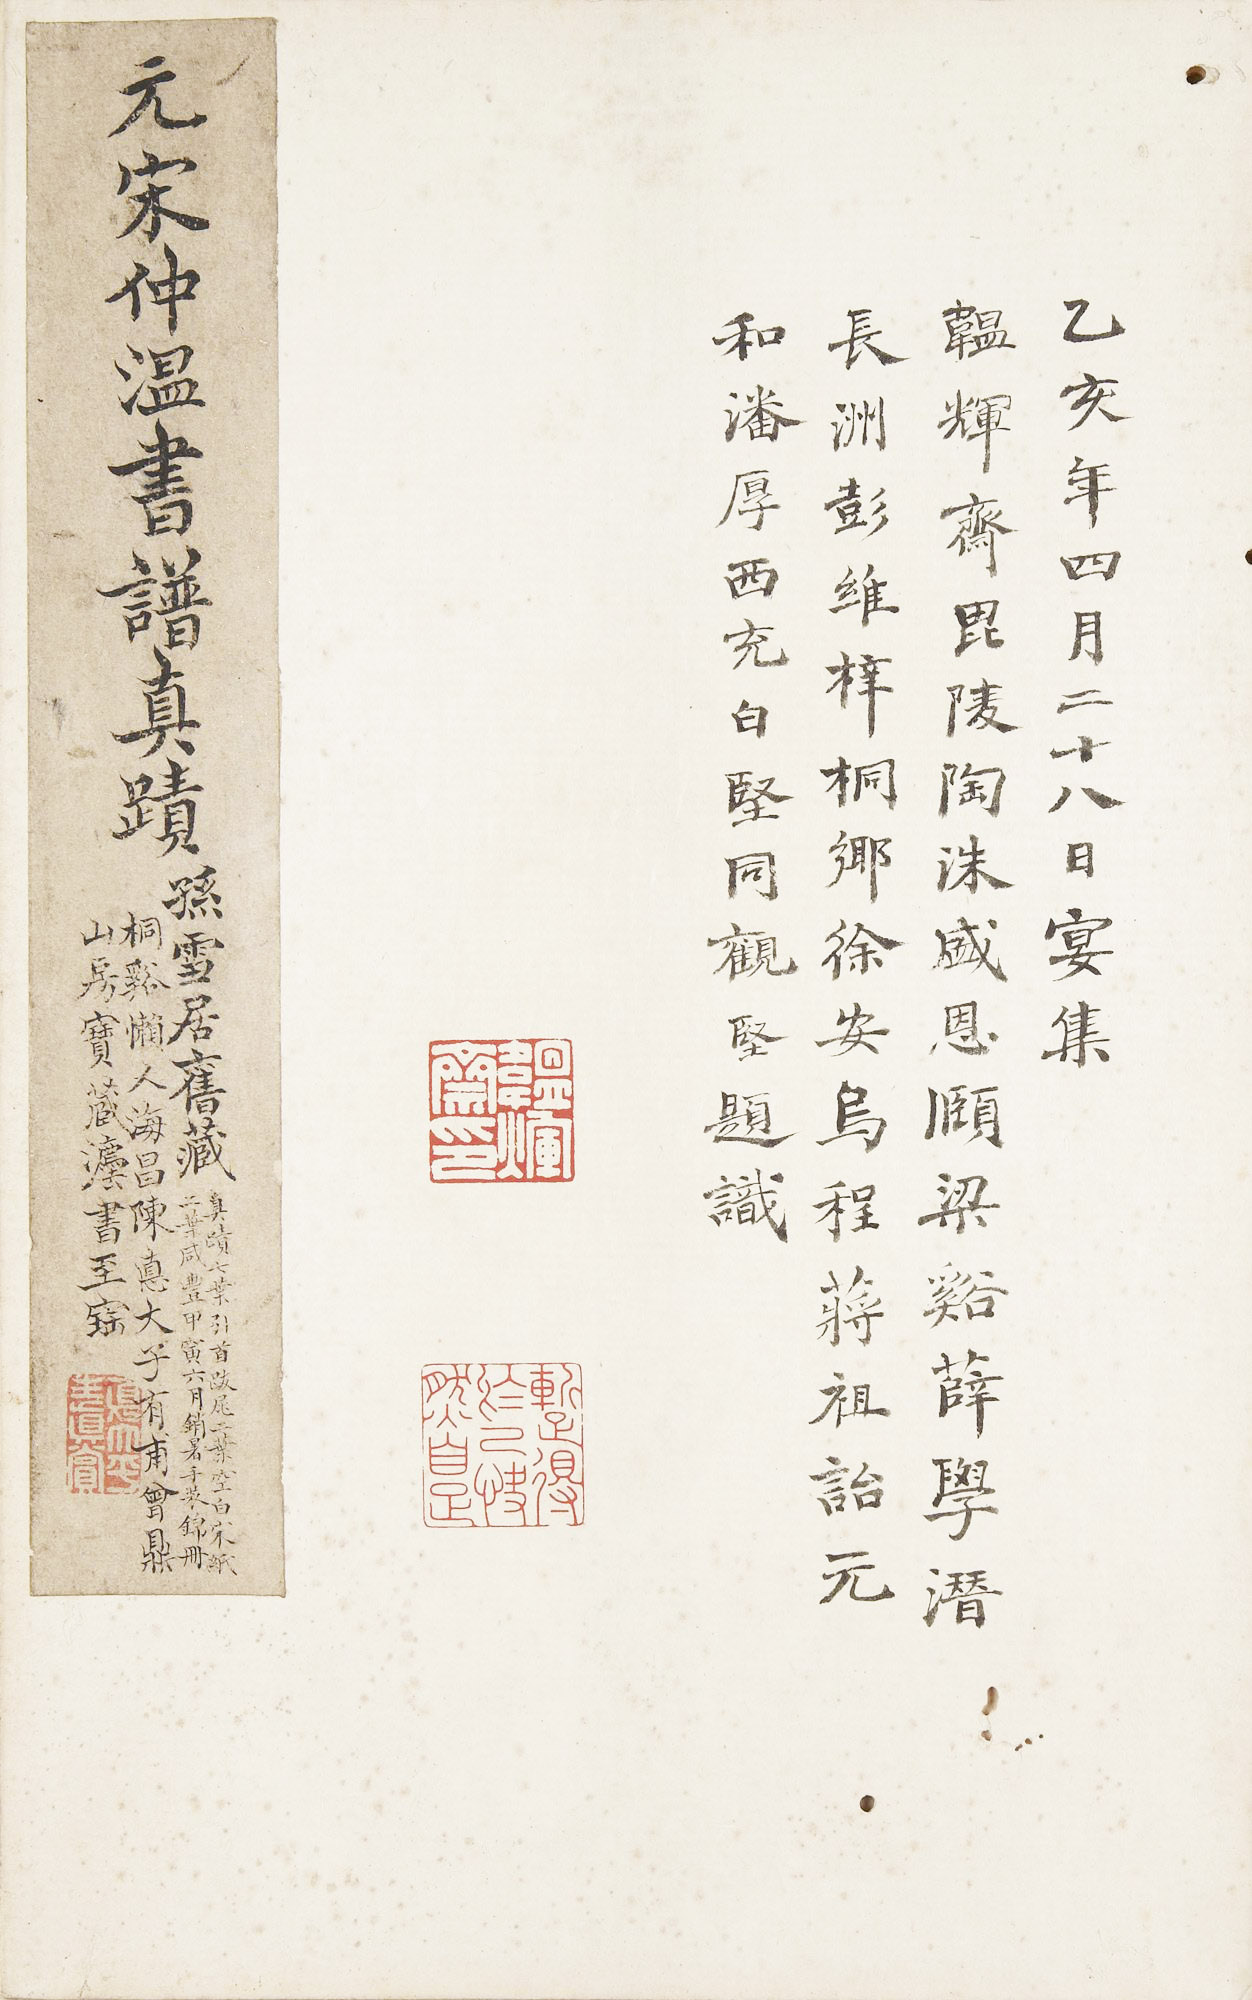 乙亥年四月二十八日宴集
韞輝齋毘陵陶洙盛恩頤梁谿薛學潛
長洲彭維梓桐鄉徐安烏程蔣祖詒元
和潘厚西充白堅同觀堅題識
韞輝齋印
暫得於己快然自足
元宋仲溫書譜真蹟
孫雪居舊藏
真蹟七葉引首跋尾二葉空白宋紙
二葉咸豐甲寅六月銷暑手裝錦冊
桐谿懶人海昌陳惪大子有甫曾鼎
山房寶藏灋書至寶